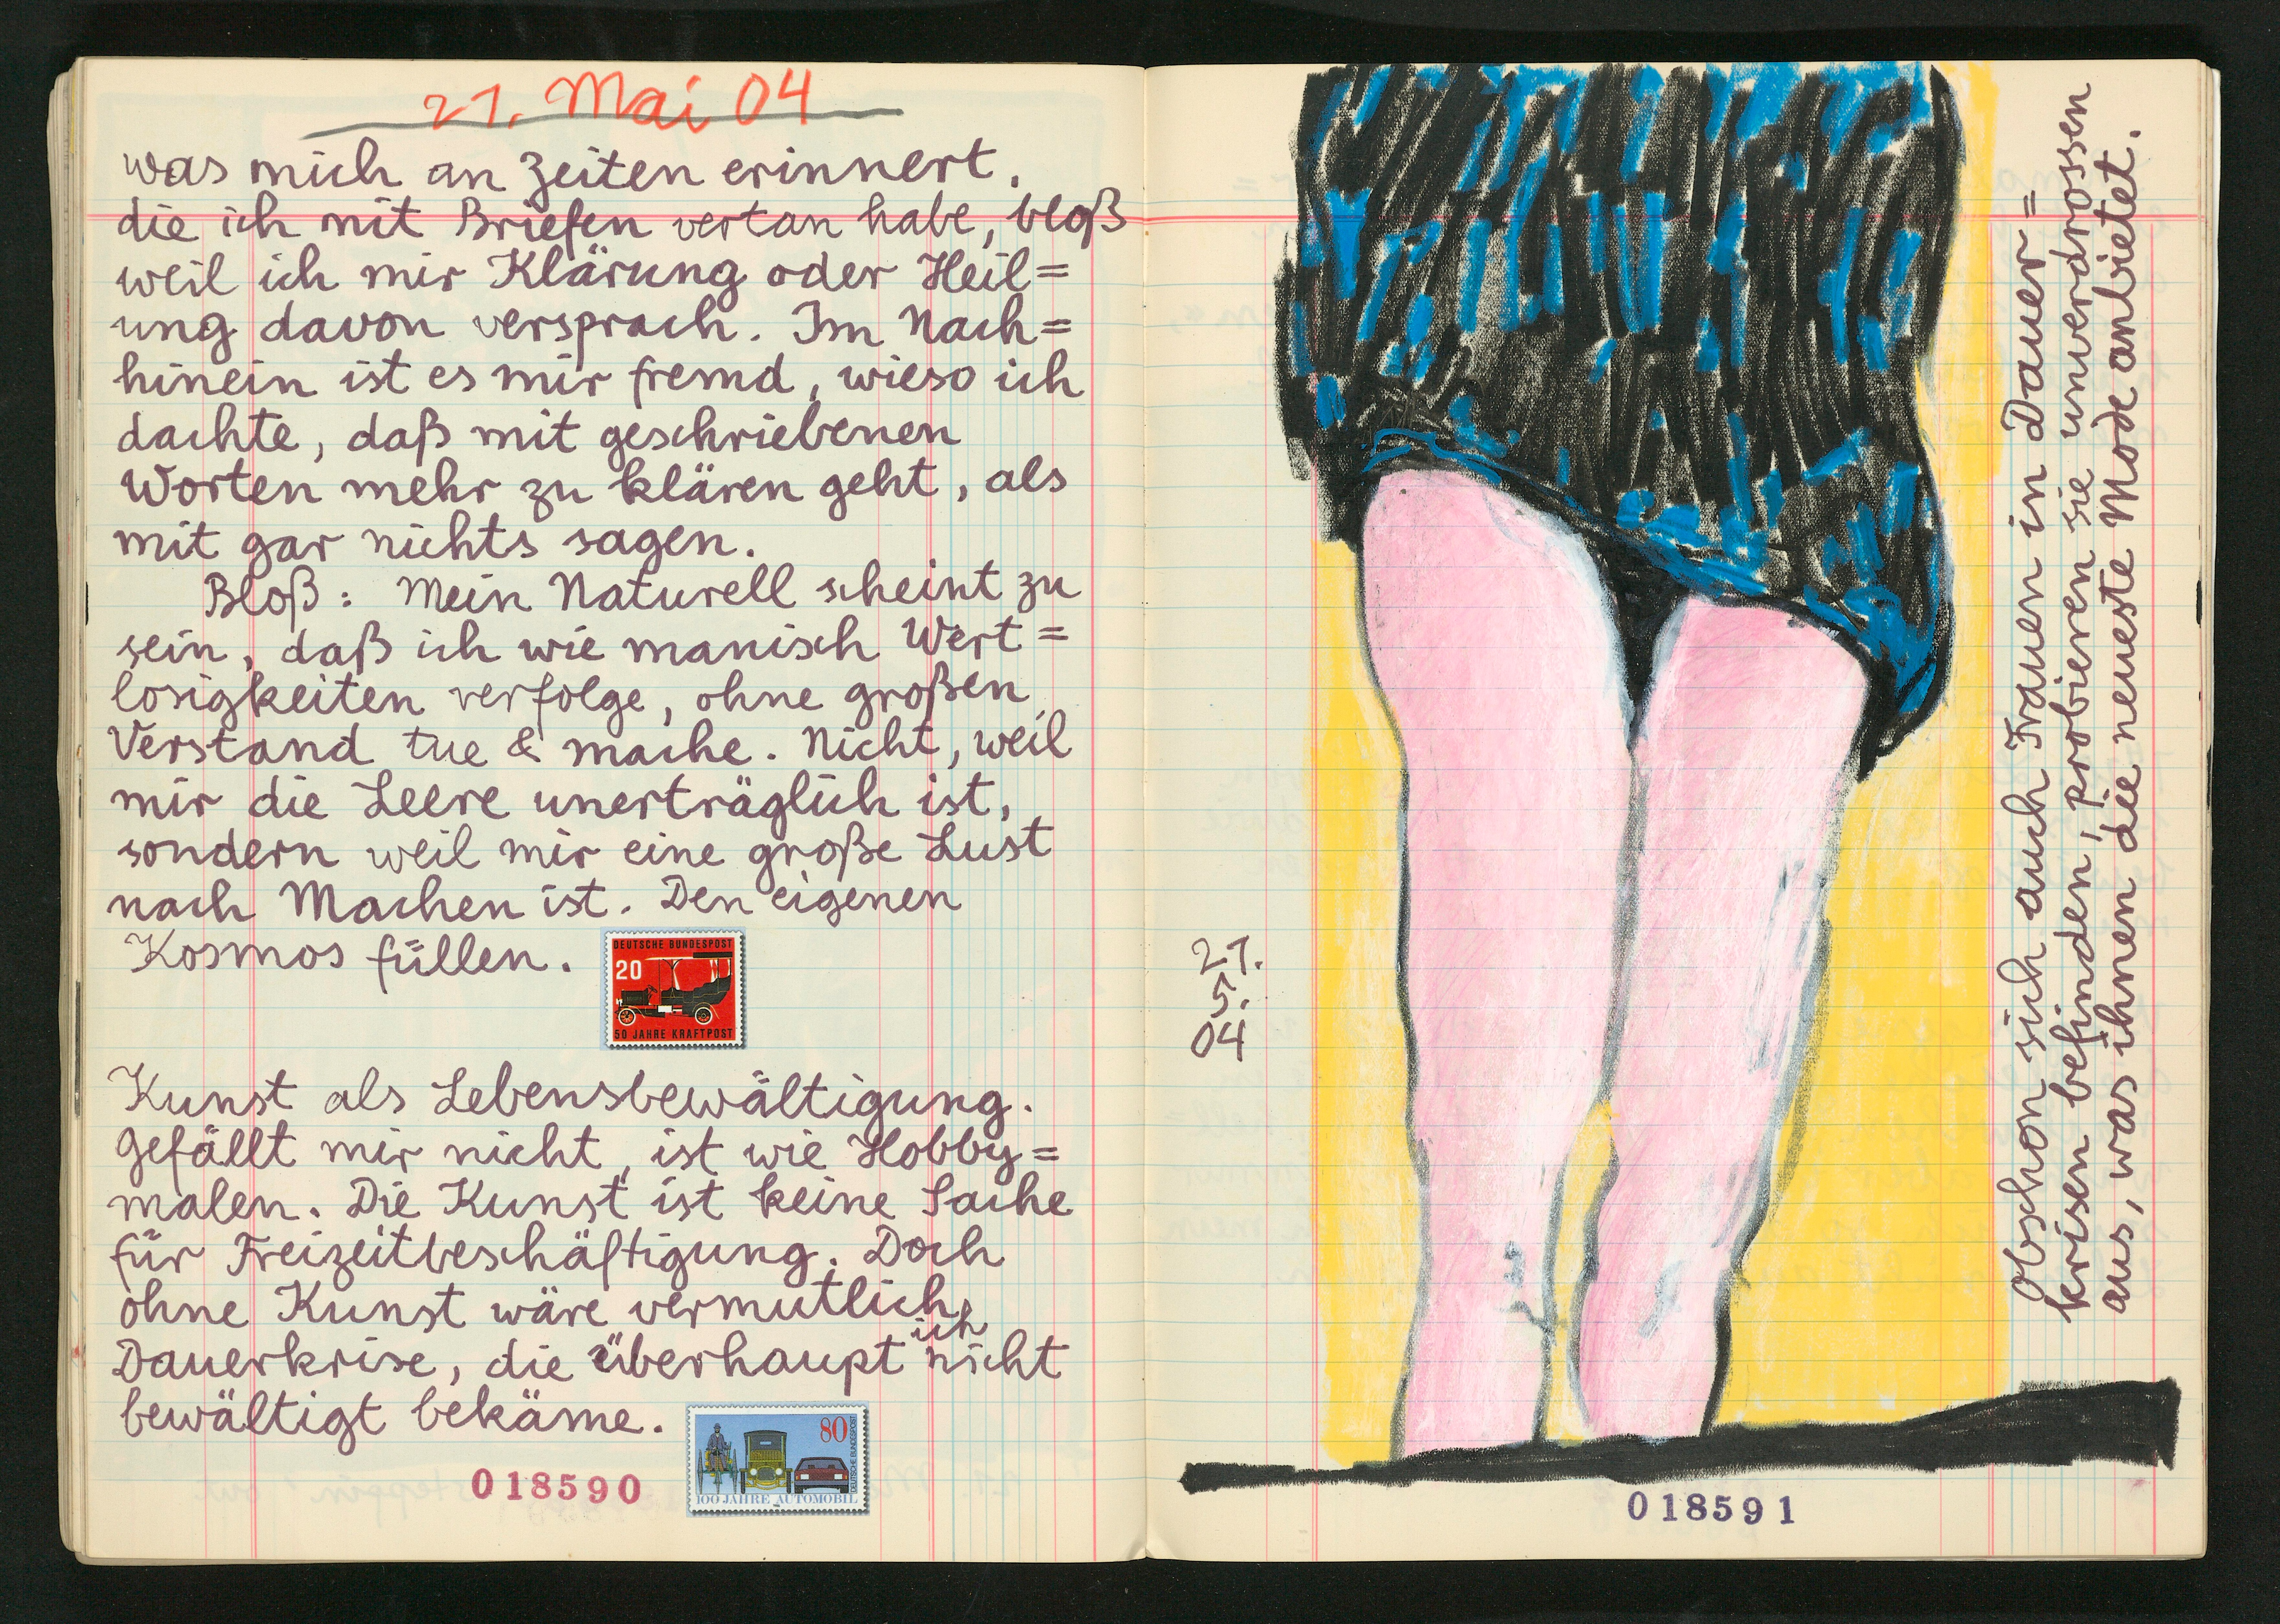 21. Mai 04
was mich an Zeiten erinnert,
die ich mit Briefen vertan habe, bloß
weil ich mir Klärung oder Heil=
ung davon versprach. Im Nach=
hinein ist es mir fremd, wieso ich
dachte, daß mit geschriebenen
Worten mehr zu klären geht, als
mit gar nichts sagen.
Bloß: Mein Naturell scheint zu
sein, daß ich wie manisch Wert=
losigkeiten verfolge, ohne großen
Verstand tue & mache. Nicht, weil
mir die Leere unerträglich ist,
sondern weil mir eine große Lust
nach Machen ist. Den eigenen
Kosmos füllen.
DEUTSCHE BUNDESPOST
20
50 JAHRE KRAFTPOST
Kunst als Lebensbewältigung.
Gefällt mir nicht, ist wie Hobby=
malen. Die Kunst ist keine Sache
für Freizeitbeschäftigung. Doch
ohne Kunst wäre vermutlich
Dauerkrise, die überhaupt ich nicht
bewältigt bekäme.
80
DEUTSCHE BUNDESPOST
100 JAHRE AUTOMOBIL
018590
21.
5.
04
Obschon sich auch Frauen in Dauer=
krisen befinden, probieren sie unverdrossen
aus, was ihnen die neueste Mode anbietet.
018591